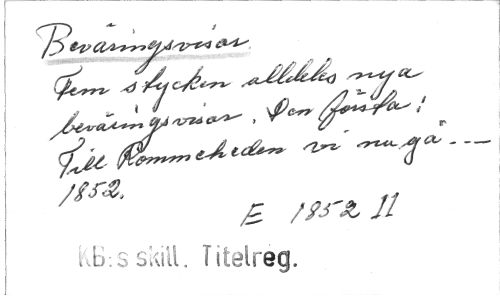 Beväringsvisor.
Fem stycken alldeles nya
beväringsvisor. Den första:
Till Rommeheden vi nu gå ---
1852.
E 1852 II
KB:s skill. Titelreg.